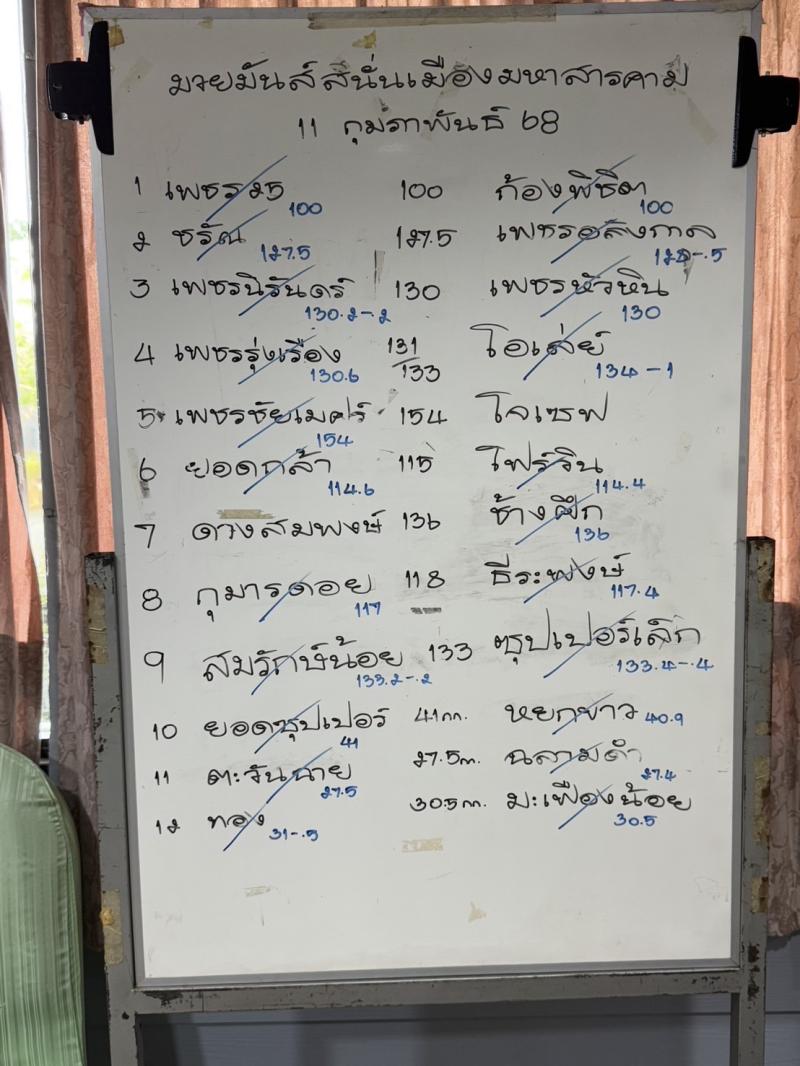 มวยมันส์สนั่นเมืองมหาสารคาม
11 กุมภาพันธ์ 68
1 เพชร 25 100 ก้องพิชิต
100 100
2 ชรัณ 127.5 เพชรอลังกาล
127.5 128-.5
3 เพชรนิรันดร์ 130 เพชรหัวหิน
130.2-.2 130
4 เพชรรุ่งเรือง 131/133 โอเล่ย์
130.6 134-1
5 เพชรชัยเมศร์ 154 โจเซฟ
154
6 ยอดกล้า 115 ไฟร์วิน
114.6 114.4
7 ดวงสมพงษ์ 136 ช้างศึก
136
8 กุมารดอย 118 ธีระพงษ์
117 117.4
9 สมรักษ์น้อย 133 ซุปเปอร์เล็ก
133.2-.2 133.4-.4
10 ยอดซุปเปอร์ 41กก. หยกขาว
41 40.9
11 ตะวันฉาย 27.5ก. ฉลามดำ
27.5 27.4
12 ทอง 30.5ก. มะเฟืองน้อย
31-.5 30.5